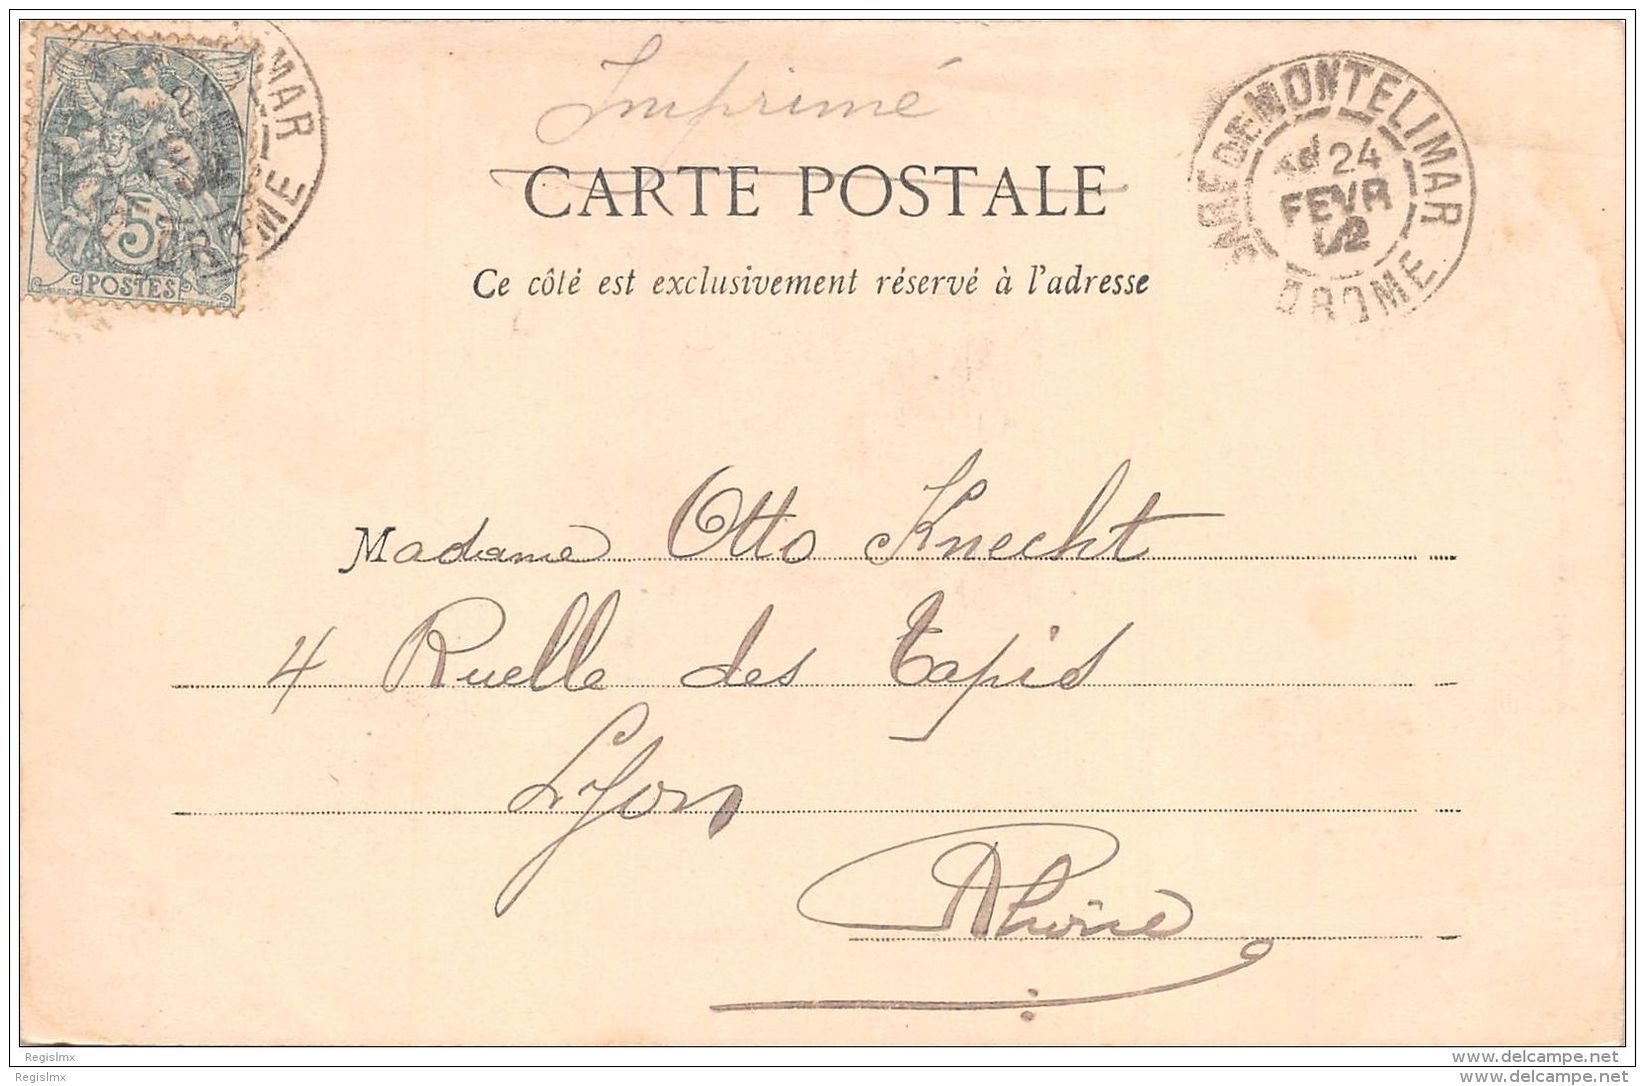 Imprimé
CARTE POSTALE
Ce côté est exclusivement réservé à l'adresse
5
POSTES
MAR
DROME
GARE DE MONTELIMAR
24
FEVR
02
DROME
Madame Otto Knecht
4 Ruelle des Tapis
Lyon
Rhône
RegisImx
RegisImx
www.delcampe.net
www.delcampe.net